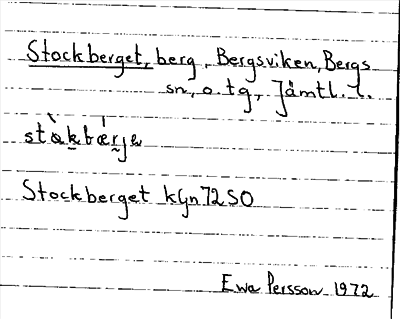 Stockberget, berg, Bergsviken, Bergs
sn, o. tg, Jämtl. l.
Stockberget kgn 72 SO
Ewa Persson 1972